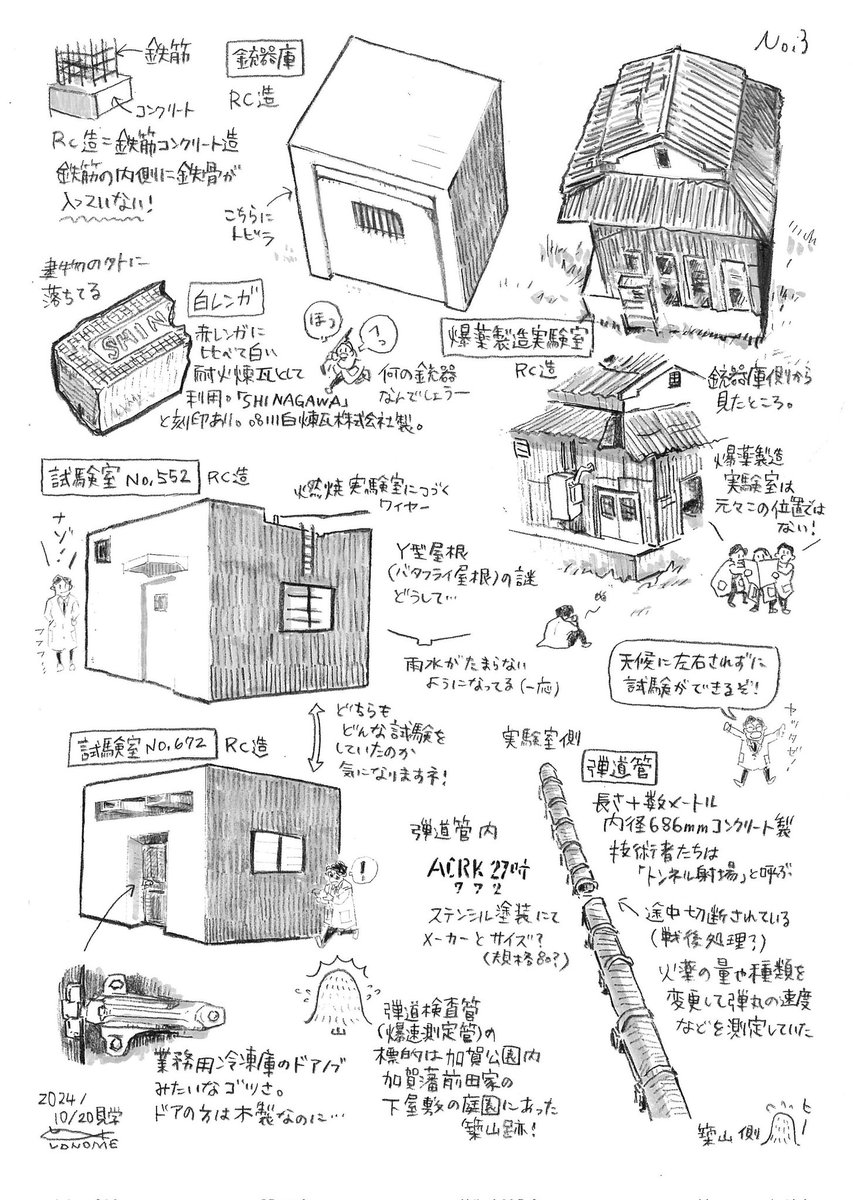 No.3
鉄筋
コンクリート
RC造=鉄筋コンクリート造
鉄筋の内側に鉄骨が
入っていない!
銃器庫
RC造
こちらに
トビラ
建物の外に
落ちてる
SHIN
白レンガ
赤レンガに
比べて白い
耐火煉瓦として
利用。「SHINAGAWA」
と刻印あり。品川白煉瓦株式会社製。
ほっ
へっ
何の銃器
なんでしょうー
爆薬製造実験室
RC造
銃器庫側から
見たところ。
爆薬製造
実験室は
元々この位置では
ない!
試験室 No.552
RC造
燃焼実験室につづく
ワイヤー
ナゾ!
フフフ…
Y型屋根
(バタフライ屋根)の謎
どうして…
雨水がたまらない
ようになってる(一応)
どちらも
どんな試験を
していたのか
気になりますネ!
試験室 No.672
RC造
!
業務用冷凍庫のドアノブ
みたいなゴツさ。
ドアの方は木製なのに…
天候に左右されずに
試験ができるぞ!
ヤッタゼー!
実験室側
弾道管
長さ十数メートル
内径686mmコンクリート製
技術者たちは
「トンネル射場」と呼ぶ
途中切断されている
(戦後処理?)
火薬の量や種類を
変更して弾丸の速度
などを測定していた
弾道管内
ACRK 27吋
772
ステンシル塗装にて
メーカーとサイズ?
(規格80?)
弾道検査管
(爆速測定管)の
標的は加賀公園内
加賀藩前田家の
下屋敷の庭園にあった
築山跡!
築山側
ヒー
2024/
10/20見学
LONOME